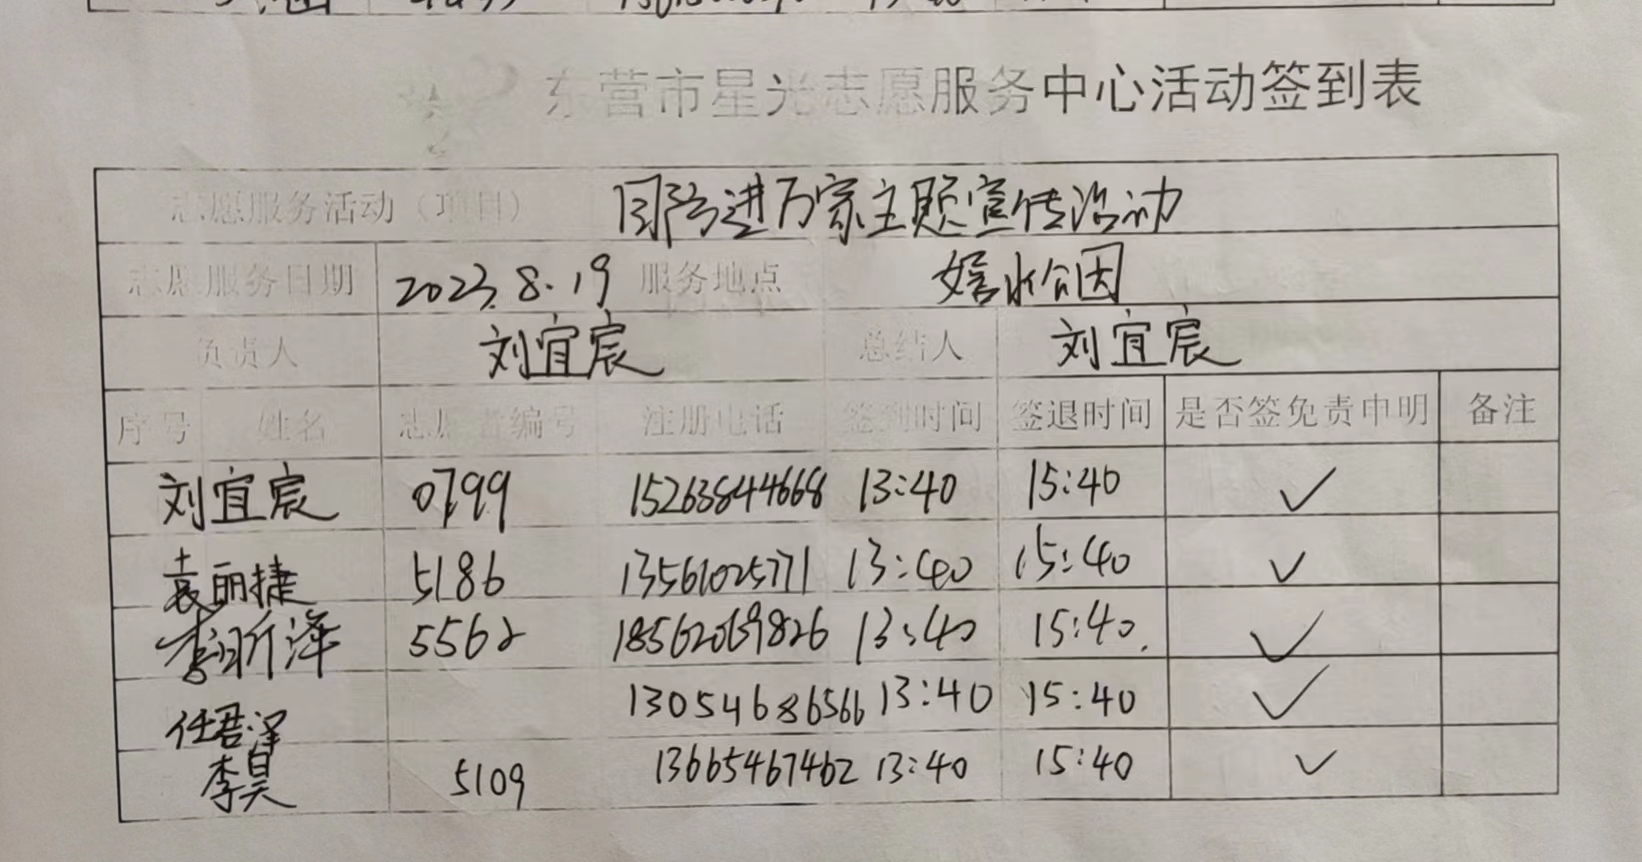 东营市星光志愿服务中心活动签到表
志愿服务活动（项目） 国际号进万家主题宣传活动
志愿服务日期 2023.8.19 服务地点
负责人 刘宜宸 总结人 刘宜宸
序号 姓名 志愿者编号 注册电话 签到时间 签退时间 是否签免责申明 备注
刘宜宸 0799 15263844668 13:40 15:40 ✓
袁丽捷 5186 13561025771 13:40 15:40 ✓
李昕泽 5562 18562069826 13:40 15:40. ✓
任君泽 13054686566 13:40 15:40 ✓
李昊 5109 13665467462 13:40 15:40 ✓